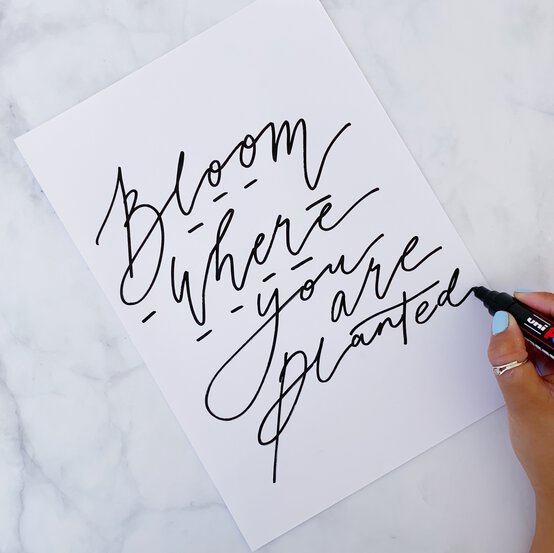 Bloom
Where
you are
planted
uni